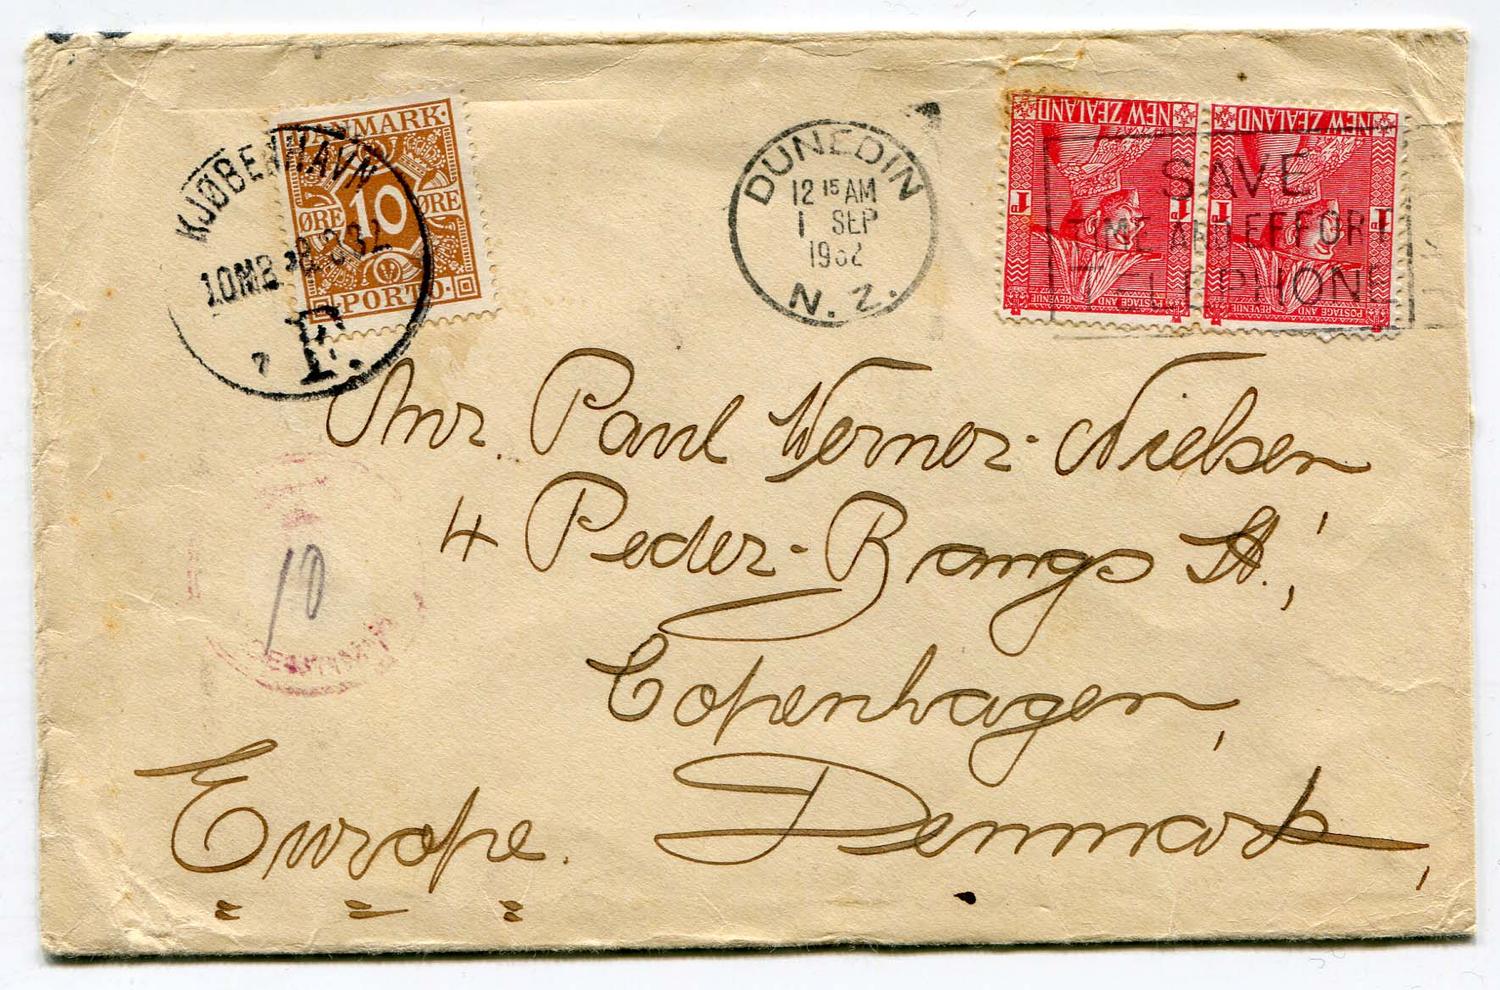 DANMARK
ØRE 10 ØRE
PORTO
KJØBENHAVN
10MB
7 F.
DUNEDIN
12 15 AM
1 SEP
1932
N.Z.
NEW ZEALAND
1D 1D
POSTAGE AND REVENUE
NEW ZEALAND
1D 1D
POSTAGE AND REVENUE
SAVE
TIME AND EFFORT
TELEPHONE
Mr. Paul Werner-Nielsen
4 Peder-Bangs St.,
Copenhagen,
Denmark,
Europe.
10